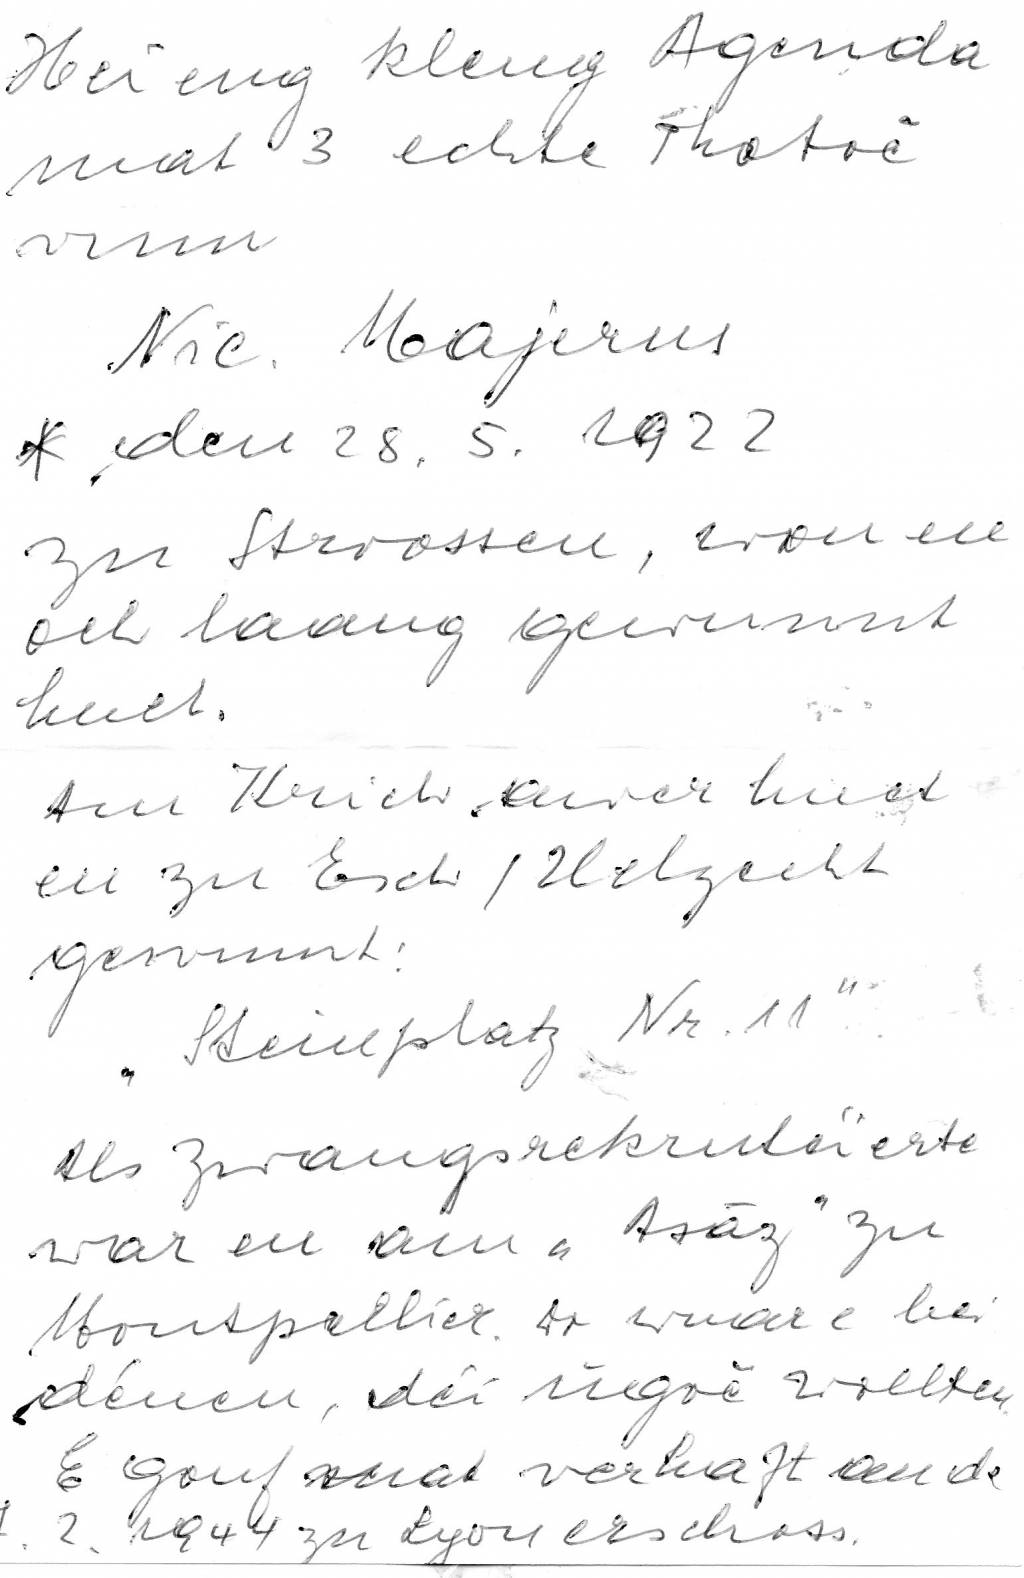 Hei eng kleng Agenda
mat 3 echte Photoë
vun
Nic. Majerus
* den 28. 5. 1922
zu Stroossen, wou en
och laang gewunnt
huet.
Am Krich awer huet
en zu Esch / Uelzecht
gewunnt:
„Steinplatz Nr. 11"
Als Zwangsrekrutéierte
war en am „Asäz" zu
Montpellier. Do war e bei
dénen, déi
wollten.
E gouf mat verhaft an de
. 2. 1944 zu Lyon erschoss.